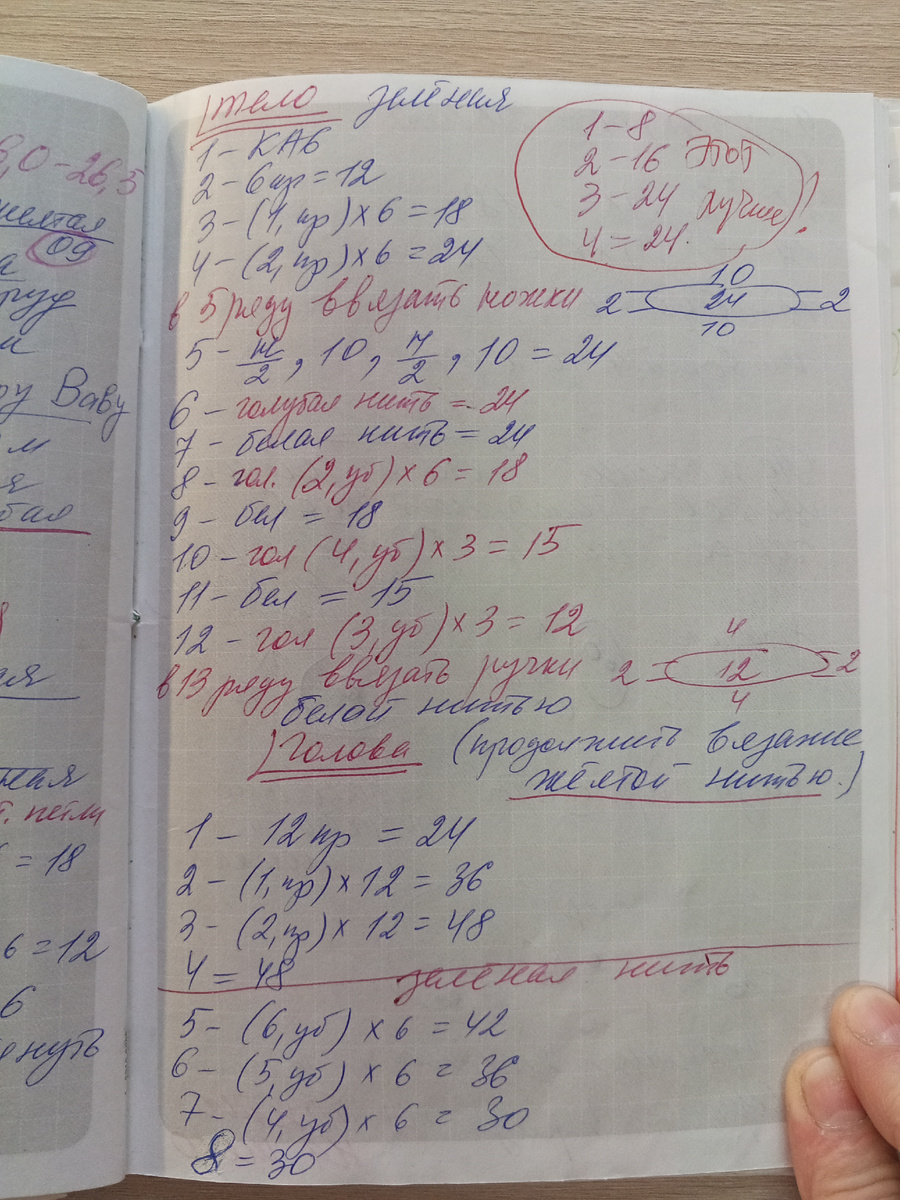 тело зелёная
1 - КА6
2 - 6 пр = 12
3 - (1, пр) × 6 = 18
4 - (2, пр) × 6 = 24
1 - 8
2 - 16 Этот
3 - 24 лучше!
4 = 24.
в 5 ряду ввязать ножки
10
2 = 24 = 2
10
5 - н/2, 10, н/2, 10 = 24
6 - голубая нить = 24
7 - белая нить = 24
8 - гол. (2, уб) × 6 = 18
9 - бел = 18
10 - гол (4, уб) × 3 = 15
11 - бел = 15
12 - гол (3, уб) × 3 = 12
в 13 ряду ввязать ручки
белой нитью
4
2 = 12 = 2
4
Голова (продолжить вязание
жёлтой нитью.)
1 - 12 пр = 24
2 - (1, пр) × 12 = 36
3 - (2, пр) × 12 = 48
4 = 48
зелёная нить
5 - (6, уб) × 6 = 42
6 - (5, уб) × 6 = 36
7 - (4, уб) × 6 = 30
8 = 30
,0 - 26,5
09
Ваву
петли
= 18
6 = 12
6